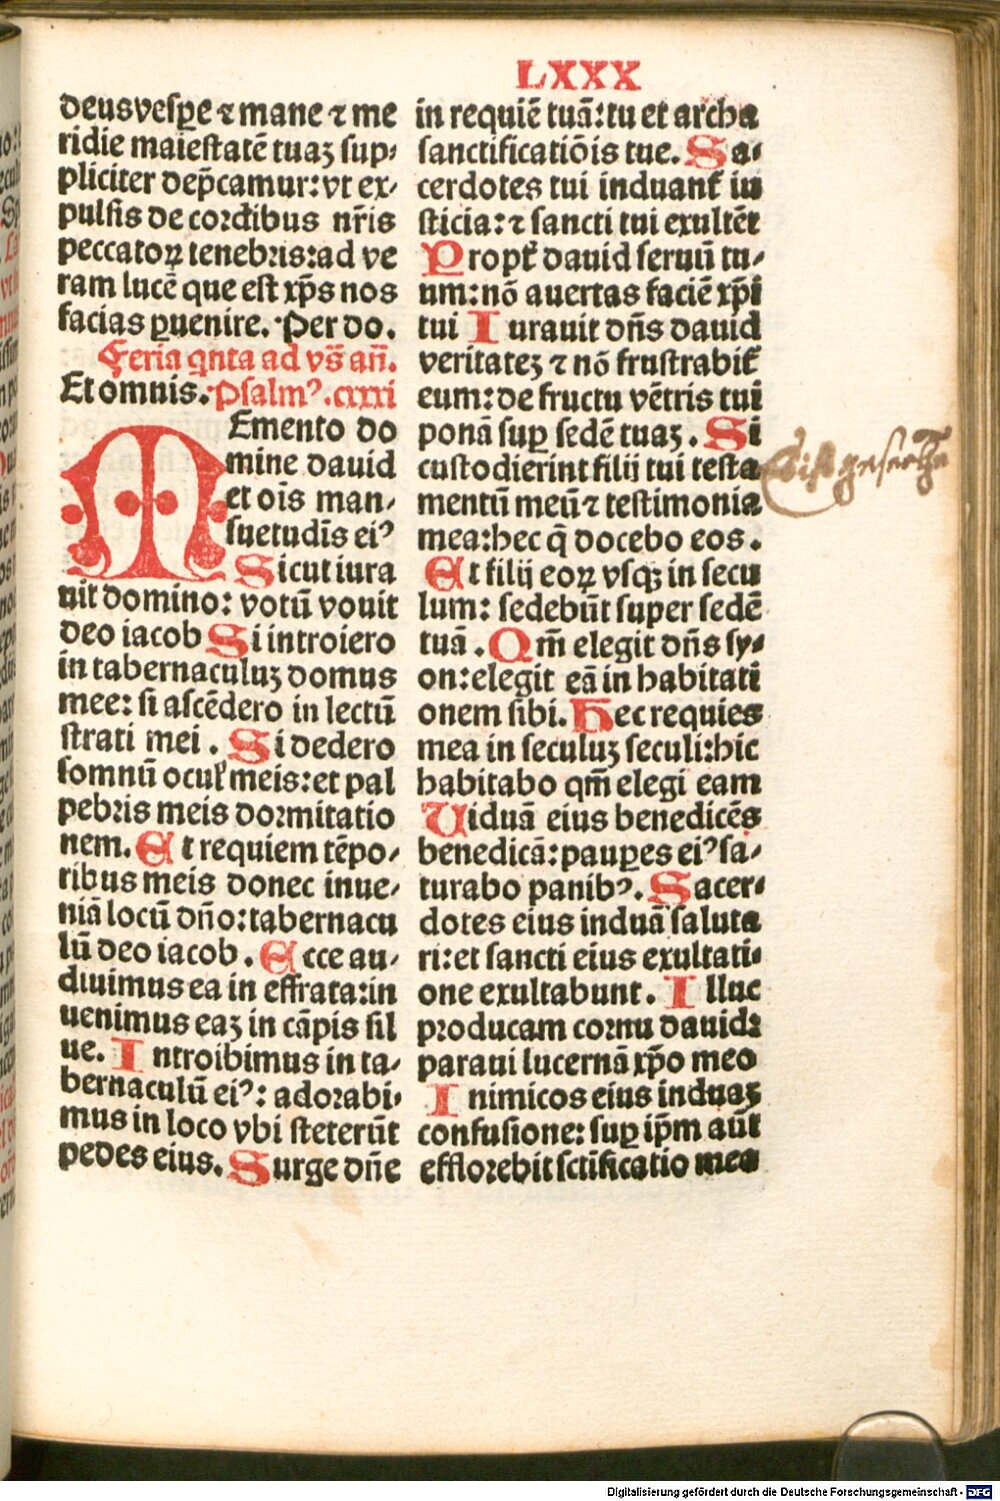 LXXX
deus vesꝑe ⁊ mane ⁊ me
ridie maiestatē tuaꝫ sup-
pliciter dep̄camur: vt ex-
pulsis de cordibus nr̄is
peccatoꝝ tenebris: ad ve
ram lucē que est xp̄s nos
facias ꝑuenire. Per do.
Feria q̇nta ad vs̄ an̄.
Et omnis. Psalmꝰ. cxxxi
MEmento do
mine dauid
et oīs man-
suetudīs eiꝰ
Sicut iura
uit domino: votū vouit
deo iacob Si introiero
in tabernaculuꝫ domus
mee: si ascēdero in lectū
strati mei. Si dedero
somnū oculꝭ meis: et pal
pebris meis dormitatio
nem. Et requiem tēpo-
ribus meis donec inue-
niā locū dn̄o: tabernacu
lū deo iacob. Ecce au-
diuimus ea in effrata: in
uenimus eaꝫ in cāpis sil
ue. Introibimus in ta-
bernaculū eiꝰ: adorabi-
mus in loco vbi steterūt
pedes eius. Surge dn̄e
in requiē tuā: tu et archa
sanctificatiōis tue. Sa-
cerdotes tui induant᷑ iu
sticia: ⁊ sancti tui exultēt
Propt᷑ dauid seruū tu-
um: nō auertas faciē xp̄i
tui Iurauit dn̄s dauid
veritateꝫ ⁊ nō frustrabit᷑
eum: de fructu vētris tui
ponā suꝑ sedē tuaꝫ. Si
custodierint filij tui testa
mentū meū ⁊ testimonia
mea: hec q̄ docebo eos.
Et filij eoꝝ vsqꝫ in secu
lum: sedebūt super sedē
tuā. Qm̄ elegit dn̄s sy-
on: elegit eā in habitati
onem sibi. Hec requies
mea in seculuꝫ seculi: hic
habitabo qm̄ elegi eam
Uiduā eius benedicēs
benedicā: pauꝑes eiꝰ sa-
turabo panibꝰ. Sacer-
dotes eius induā saluta
ri: et sancti eius exultati-
one exultabunt. Illuc
producam cornu dauid:
paraui lucernā xp̄o meo
Inimicos eius induaꝫ
confusione: suꝑ ip̄m aūt
efflorebit sctīficatio mea
Digitalisierung gefördert durch die Deutsche Forschungsgemeinschaft - DFG